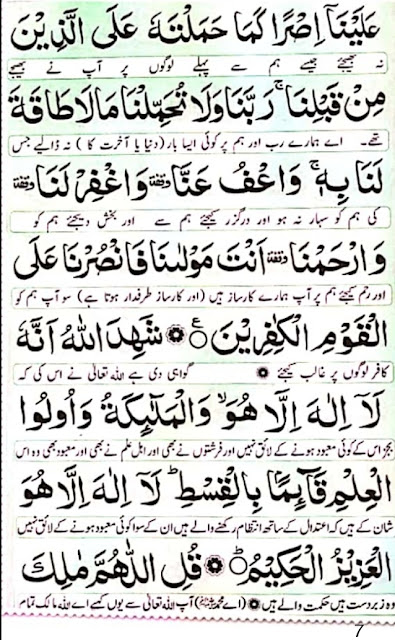 عَلَيْنَاۤ اِصْرًا كَمَا حَمَلْتَهٗ عَلَى الَّذِيْنَ
نہ بھیجئے جیسے ہم سے پہلے لوگوں پر آپ نے بھیجے
مِنْ قَبْلِنَا ۚ رَبَّنَا وَلَا تُحَمِّلْنَا مَا لَا طَاقَةَ
تھے۔ اے ہمارے رب اور ہم پر کوئی ایسا بار (دنیا یا آخرت کا) نہ ڈالیے جس
لَنَا بِهٖ ۚ وَاعْفُ عَنَّا وقفة وَاغْفِرْ لَنَا وقفة
کی ہم کو سہار نہ ہو اور درگزر کیجئے ہم سے اور بخش دیجئے ہم کو
وَارْحَمْنَا وقفة اَنْتَ مَوْلٰىنَا فَانْصُرْنَا عَلَى
اور رحم کیجئے ہم پر آپ ہمارے کارساز ہیں (اور کارساز طرفدار ہوتا ہے) سو آپ ہم کو
الْقَوْمِ الْكٰفِرِيْنَ ۝ع شَهِدَ اللّٰهُ اَنَّهٗ
کافر لوگوں پر غالب کیجئے گواہی دی ہے اللہ تعالیٰ نے اس کی کہ
لَاۤ اِلٰهَ اِلَّا هُوَ ۙ وَالْمَلٰٓئِكَةُ وَاُولُوا
بجز اس کے کوئی معبود ہونے کے لائق نہیں اور فرشتوں نے بھی اور اہل علم نے بھی اور معبود بھی وہ اس
الْعِلْمِ قَآئِمًۢا بِالْقِسْطِ ؕ لَاۤ اِلٰهَ اِلَّا هُوَ
شان کے ہیں کہ اعتدال کے ساتھ انتظام رکھنے والے ہیں ان کے سوا کوئی معبود ہونے کے لائق نہیں
الْعَزِيْزُ الْحَكِيْمُ ۝ؕ قُلِ اللّٰهُمَّ مٰلِكَ
وہ زبردست ہیں حکمت والے ہیں (اے محمد ﷺ) آپ اللہ تعالیٰ سے یوں کہیے اے اللہ مالک تمام
7